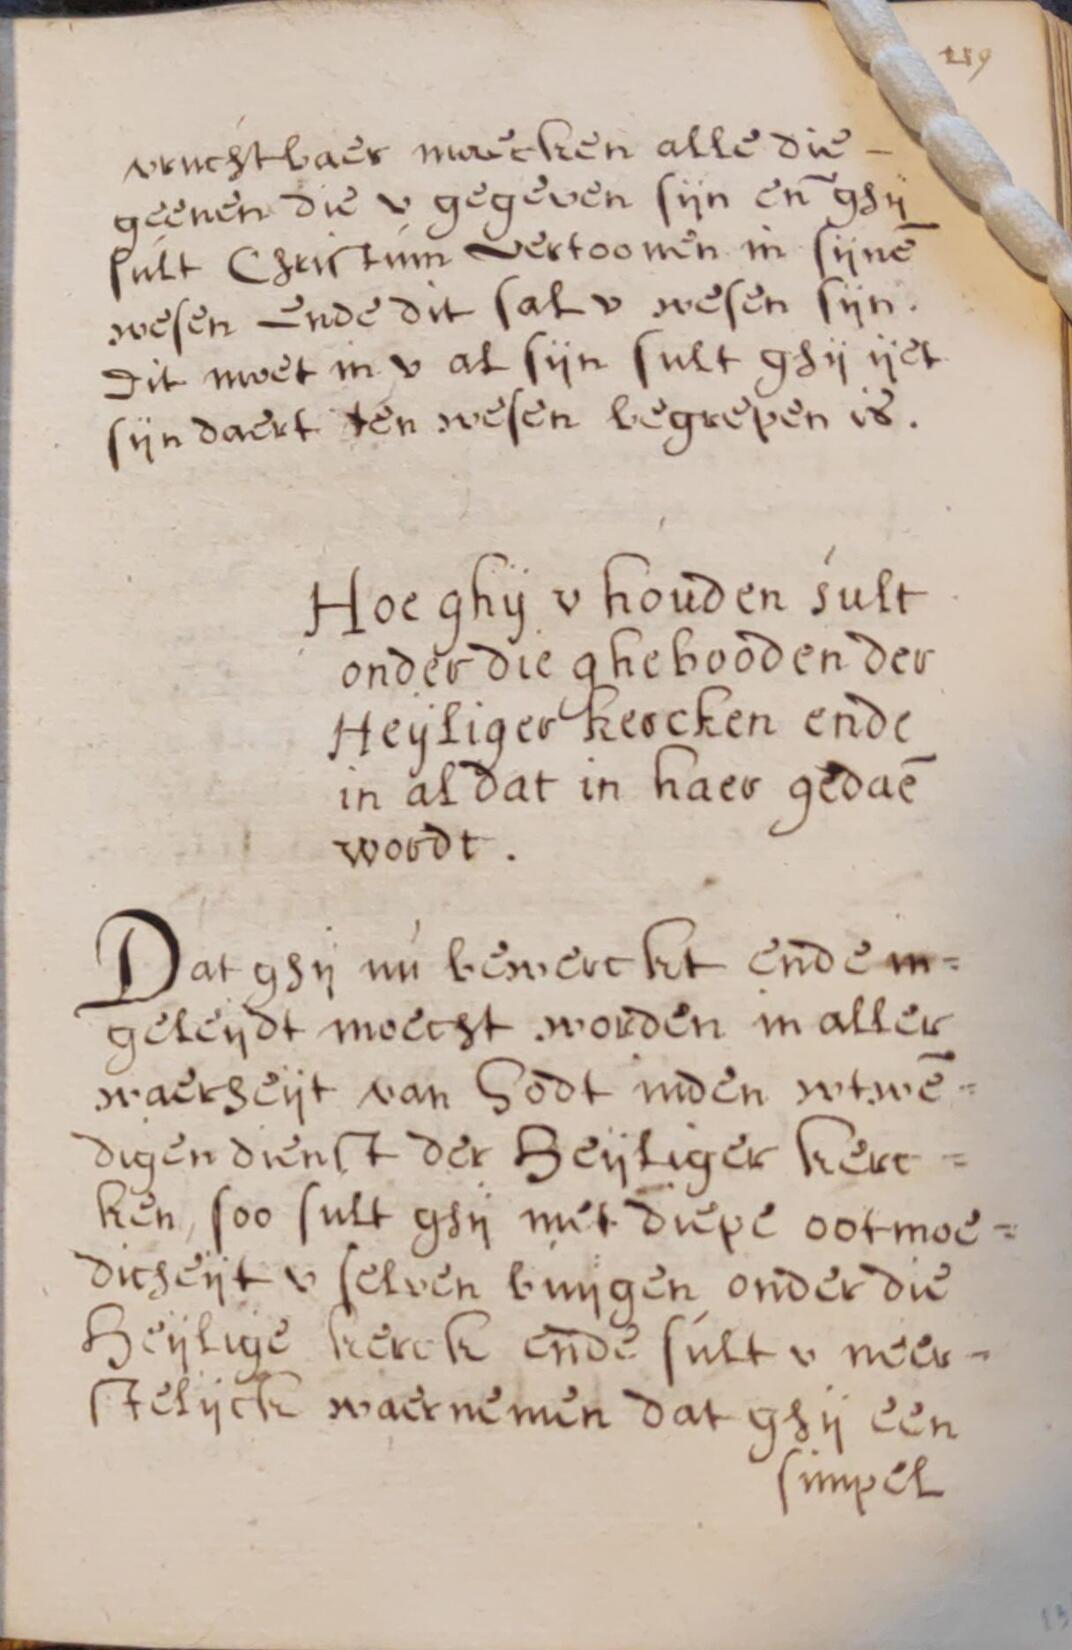 219
vruchtbaer maecken alle die -
geenen die v gegeven sijn eñ ghij
sult Christúm vertoonen in sijnē
wesen Ende dit sal v wesen sijn.
Dit moet in v al sijn sult ghij ijet
sijn daert ten wesen begrepen is.
Hoe ghij v houden sult
onder die ghebooden der
Heijliger kercken ende
in al dat in haer gedaē
wordt.
Dat ghij nú bewerckt ende in=
geleijdt moecht worden in aller
waerheijt van Godt inden wtwē=
digen dienst der Heijliger kerc=
ken, soo sult ghij met diepe ootmoe=
dicheijt v selven buijgen onder die
Heijlige kerck ende súlt v neer-
stelijck waernemen dat ghij een
simpel